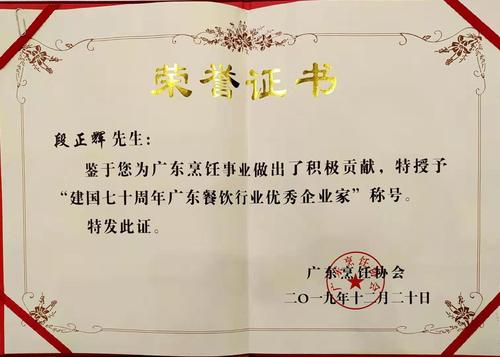 荣誉证书
段正辉先生：
鉴于您为广东烹饪事业做出了积极贡献，特授予
“建国七十周年广东餐饮行业优秀企业家”称号。
特发此证。
广东烹饪协会
二〇一九年十二月二十日
广东烹饪协会